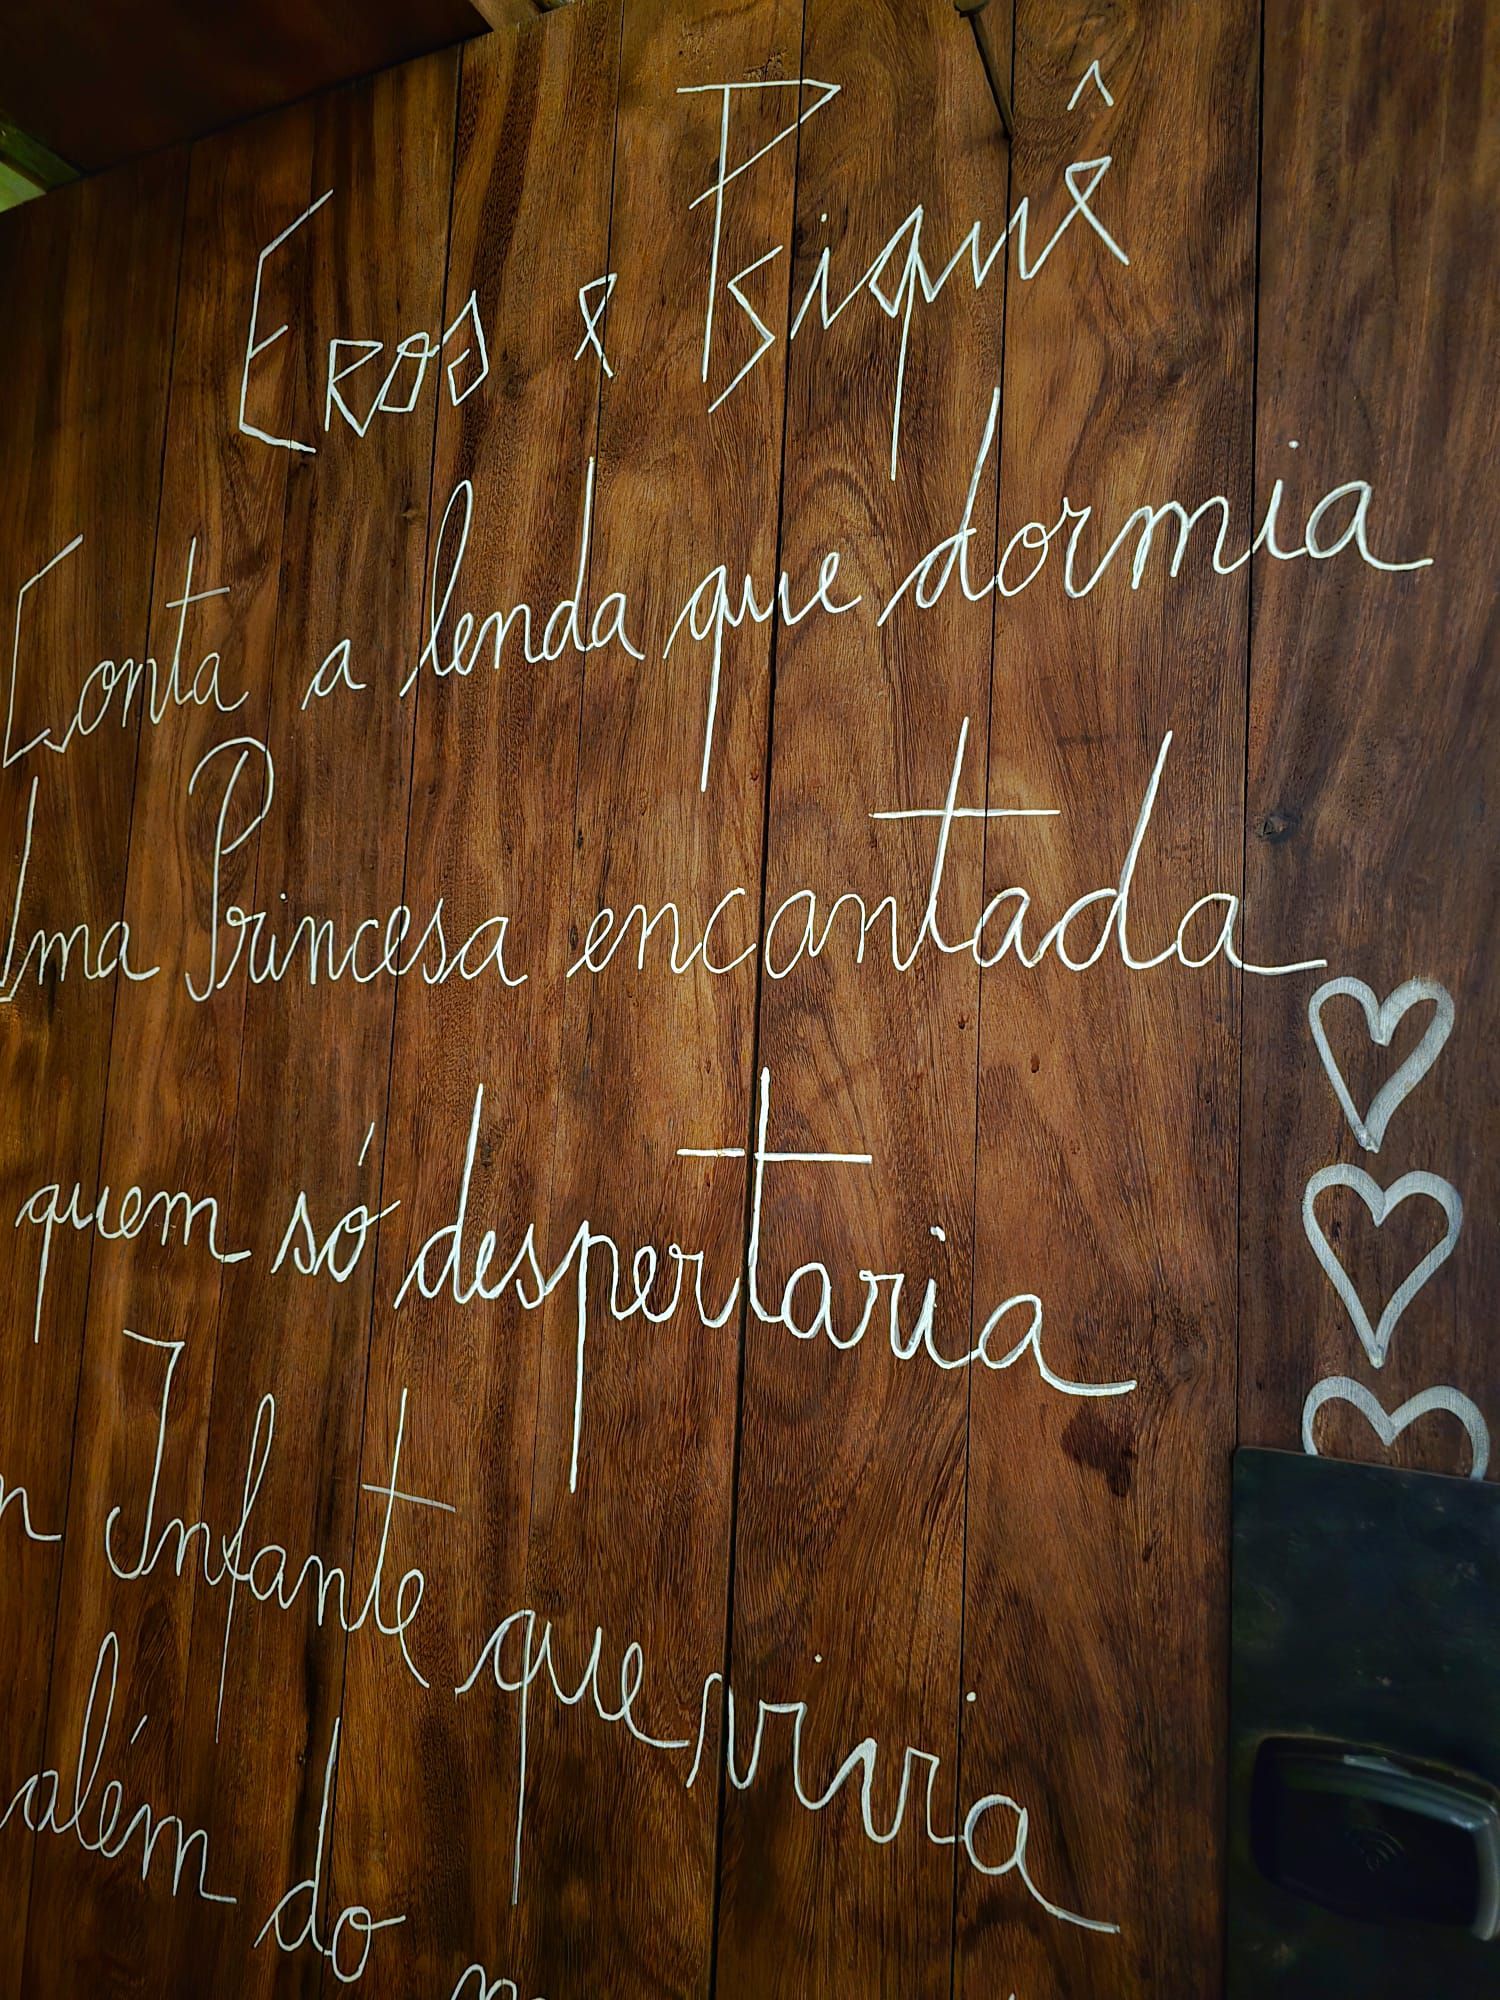 Eros e Psiquê
Conta a lenda que dormia
Uma Princesa encantada
quem só despertaria
Infante que vivia
além do